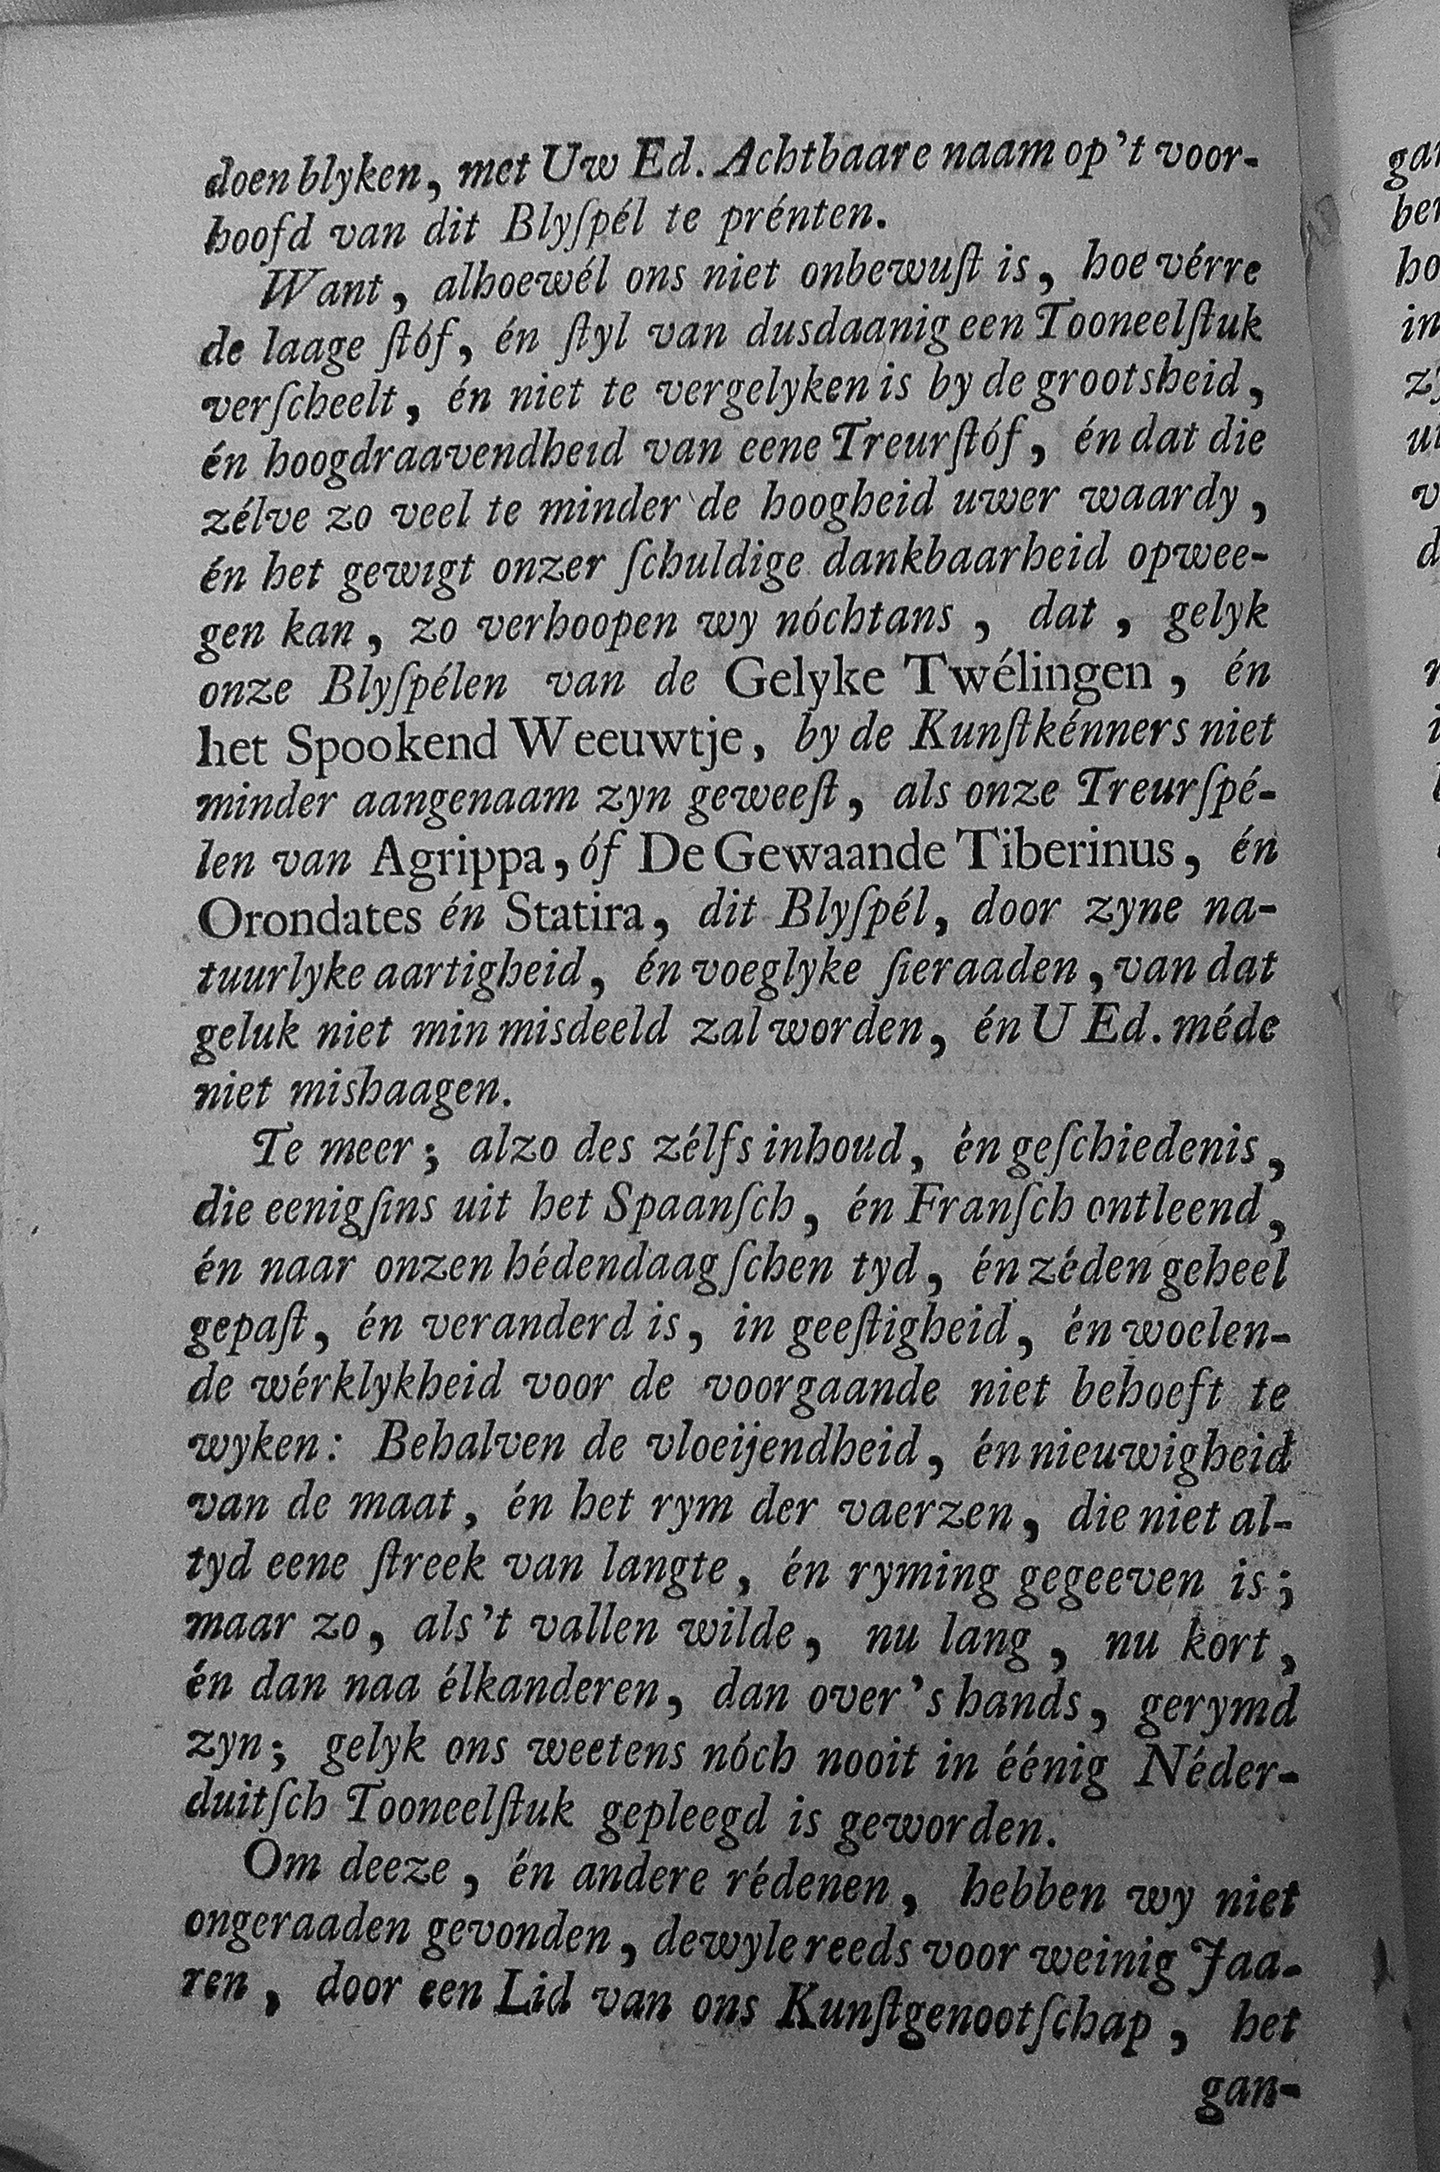 doen blyken, met Uw Ed. Achtbaare naam op 't voor-
hoofd van dit Blyſpél te prénten.
Want, alhoewél ons niet onbewuſt is, hoe vérre
de laage ſtóf, én ſtyl van dusdaanig een Tooneelſtuk
verſcheelt, én niet te vergelyken is by de grootsheid,
én hoogdraavendheid van eene Treurſtóf, én dat die
zélve zo veel te minder de hoogheid uwer waardy,
én het gewigt onzer ſchuldige dankbaarheid opwee-
gen kan, zo verhoopen wy nóchtans, dat, gelyk
onze Blyſpélen van de Gelyke Twélingen, én
het Spookend Weeuwtje, by de Kunſtkénners niet
minder aangenaam zyn geweeſt, als onze Treurſpé-
len van Agrippa, óf De Gewaande Tiberinus, én
Orondates én Statira, dit Blyſpél, door zyne na-
tuurlyke aartigheid, én voeglyke ſieraaden, van dat
geluk niet min misdeeld zal worden, én U Ed. méde
niet mishaagen.
Te meer; alzo des zélfs inhoud, én geſchiedenis,
die eenigſins uit het Spaanſch, én Franſch ontleend,
én naar onzen hédendaagſchen tyd, én zéden geheel
gepaſt, én veranderd is, in geeſtigheid, én woelen-
de wérklykheid voor de voorgaande niet behoeft te
wyken: Behalven de vloeijendheid, én nieuwigheid
van de maat, én het rym der vaerzen, die niet al-
tyd eene ſtreek van langte, én ryming gegeeven is;
maar zo, als 't vallen wilde, nu lang, nu kort,
én dan naa élkanderen, dan over 's hands, gerymd
zyn; gelyk ons weetens nóch nooit in éénig Néder-
duitſch Tooneelſtuk gepleegd is geworden.
Om deeze, én andere rédenen, hebben wy niet
ongeraaden gevonden, dewyle reeds voor weinig Jaa-
ren, door een Lid van ons Kunſtgenootſchap, het
gan-